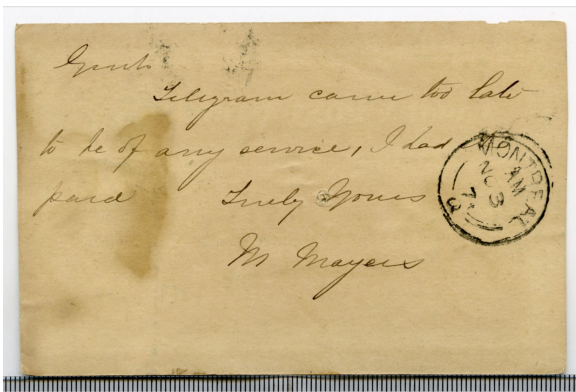 Gents
Telegram came too late
to be of any service, I had
paid Truly Yours
M Mayers
MONTREAL
AM
NO 3